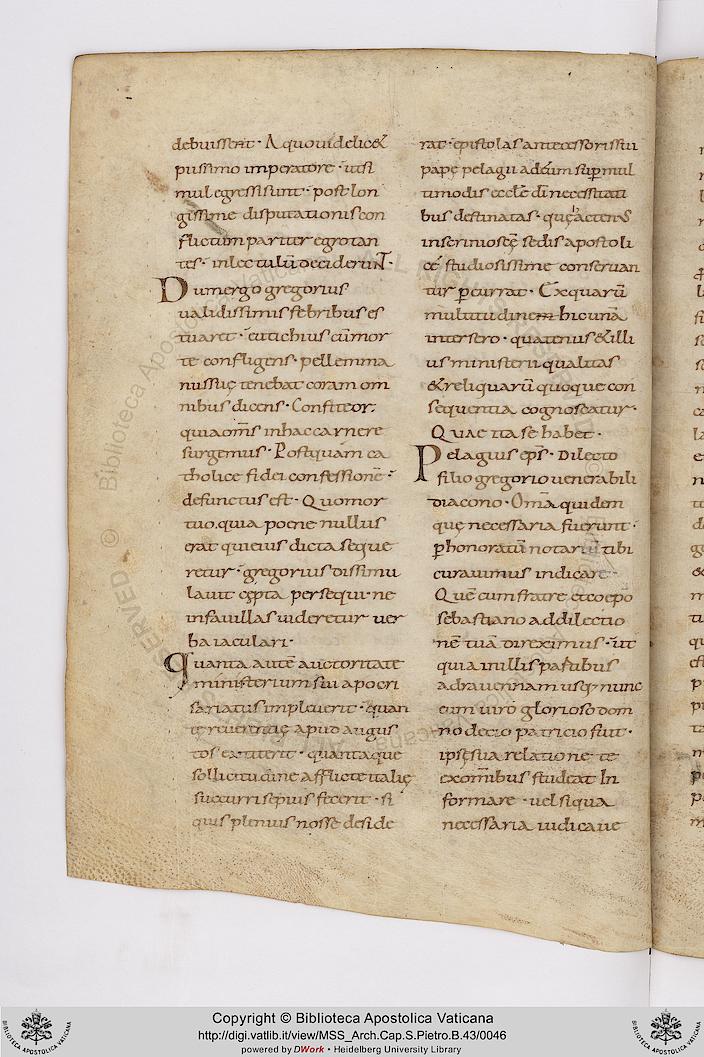 debuissent. A quo uidelic&
piissimo imperatore. ut si
mul egressi sunt. post lon
gissime disputationis con
flictum pariter egrotan
tes. in lectulū deciderunt.
Dum ergo gregorius
ualidissimis febribus es
tuaret. eutichius cū mor
te confligens. pellem ma
nus suę tenebat coram om
nibus dicens. Confiteor;
quia oms in hac carne re
surgemus. Postquam ca
tholice fidei confessionē.
defunctus est. Quo mor
tuo. quia poene nullus
erat qui eius dicta seque
retur. gregorius dissimu
lauit cępta persequi. ne
in fauillas uideretur uer
ba iaculari.
Quanta autē auctoritate
ministerium sui apocri
sariatus impleuerit. quan
tę reuerentię apud augus
tos extiterit. quantaque
sollicitudine afflicte italię
succurri sepius fecerit. si
quis plenius nosse deside
rat. epistolas antecessoris sui
pape pelagii ad eum sup mul
timodis eccle di necessitati
bus destinatas. quę actenus
in seriniosę sedis apostoli
cę studiosissime conseruan
tur pcurrat. Ex quarū
multitudinem hic unā
intersero. quatenus & illi
us ministerii qualitas
& reliquarū quoque con
sequentia cognoscatur.
Quae ita se habet.
Pelagius eps. Dilecto
filio gregorio uenerabili
diacono. Omnia quidem
quę necessaria fuerunt.
p honoratū notariū tibi
curauimus indicare.
Quē cum fratre et coepo
sebastiano ad dilectio
nē tuā direximus. ut
quia in illis partibus
ad rauennam usq; nunc
cum uiro glorioso dom
no decio patricio fuit.
ipse sua relatione te
ex omnibus studeat In
formare. uel si qua
necessaria iudicaue
Copyright © Biblioteca Apostolica Vaticana
http://digi.vatlib.it/view/MSS_Arch.Cap.S.Pietro.B.43/0046
powered by DWork • Heidelberg University Library